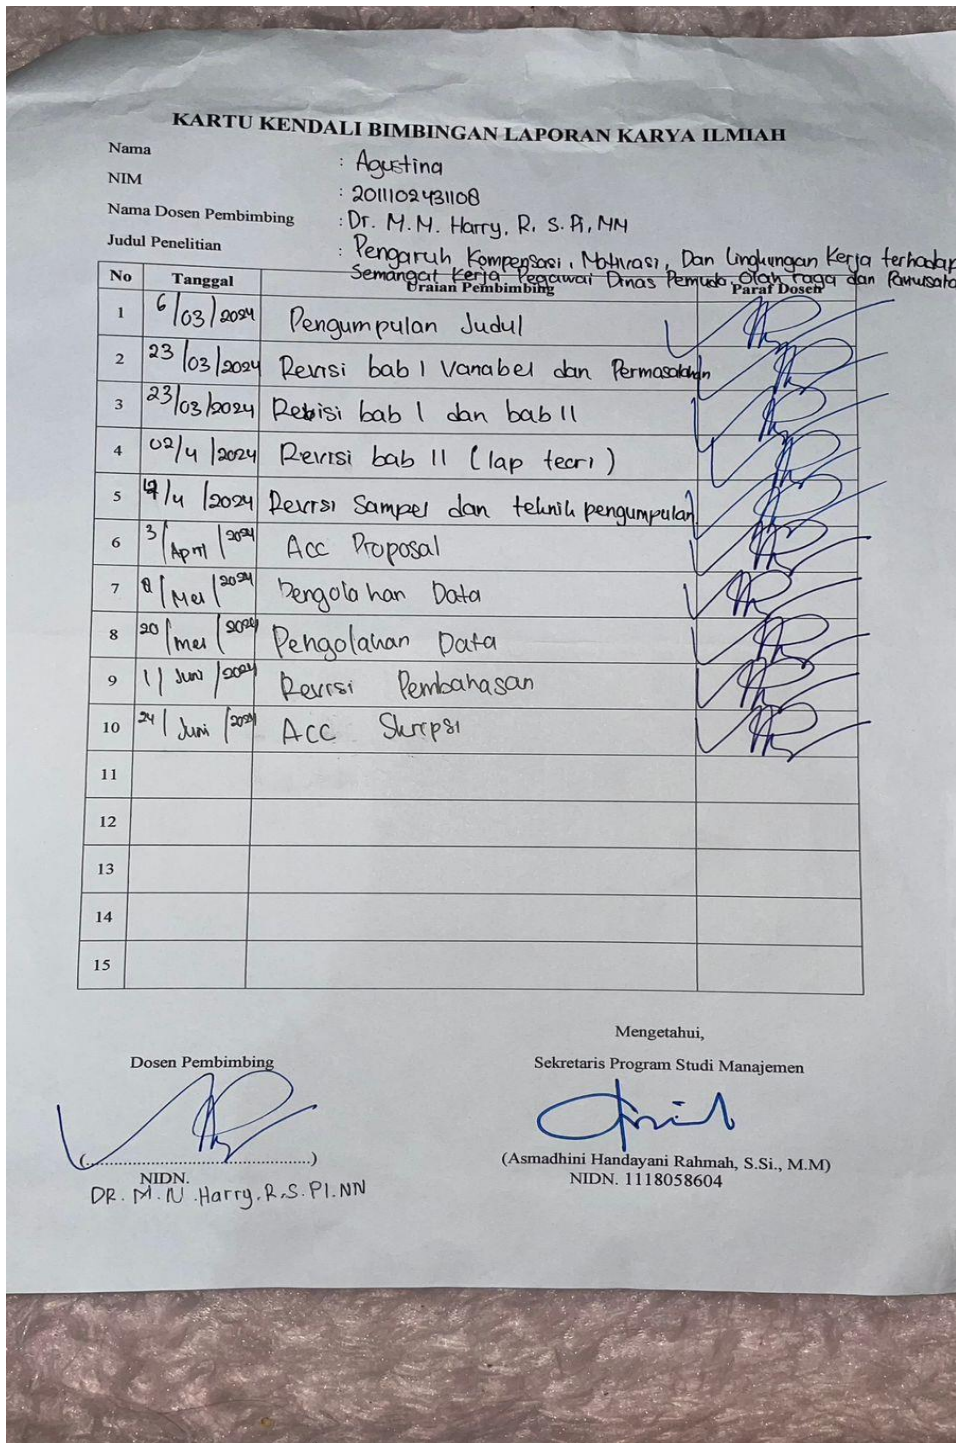 KARTU KENDALI BIMBINGAN LAPORAN KARYA ILMIAH
Nama : Agustina
NIM : 2011102431108
Nama Dosen Pembimbing : Dr. M.M. Harry. R. S. Pi, MM
Judul Penelitian : Pengaruh Kompensasi, Motivasi, Dan Lingkungan Kerja terhadap
Semangat Kerja Pegawai Dinas Pemuda Olah raga dan Pariwisata
No Tanggal Uraian Pembimbing Paraf Dosen
1 6/03/2024 Pengumpulan Judul
2 23/03/2024 Revisi bab I Variabel dan Permasalahan
3 23/03/2024 Revisi bab I dan bab II
4 02/4/2024 Revisi bab II (lap teori)
5 /4/2024 Revisi Sampel dan teknik pengumpulan
6 3/April/2024 Acc Proposal
7 /Mei/2024 Pengolahan Data
8 20/mei/2024 Pengolahan Data
9 11/Juni/2024 Revisi Pembahasan
10 24/Juni/2024 ACC Skripsi
11
12
13
14
15
Mengetahui,
Dosen Pembimbing Sekretaris Program Studi Manajemen
(..........................................) (Asmadhini Handayani Rahmah, S.Si., M.M)
NIDN. NIDN. 1118058604
DR. M.N. Harry. R. S. PI. NN